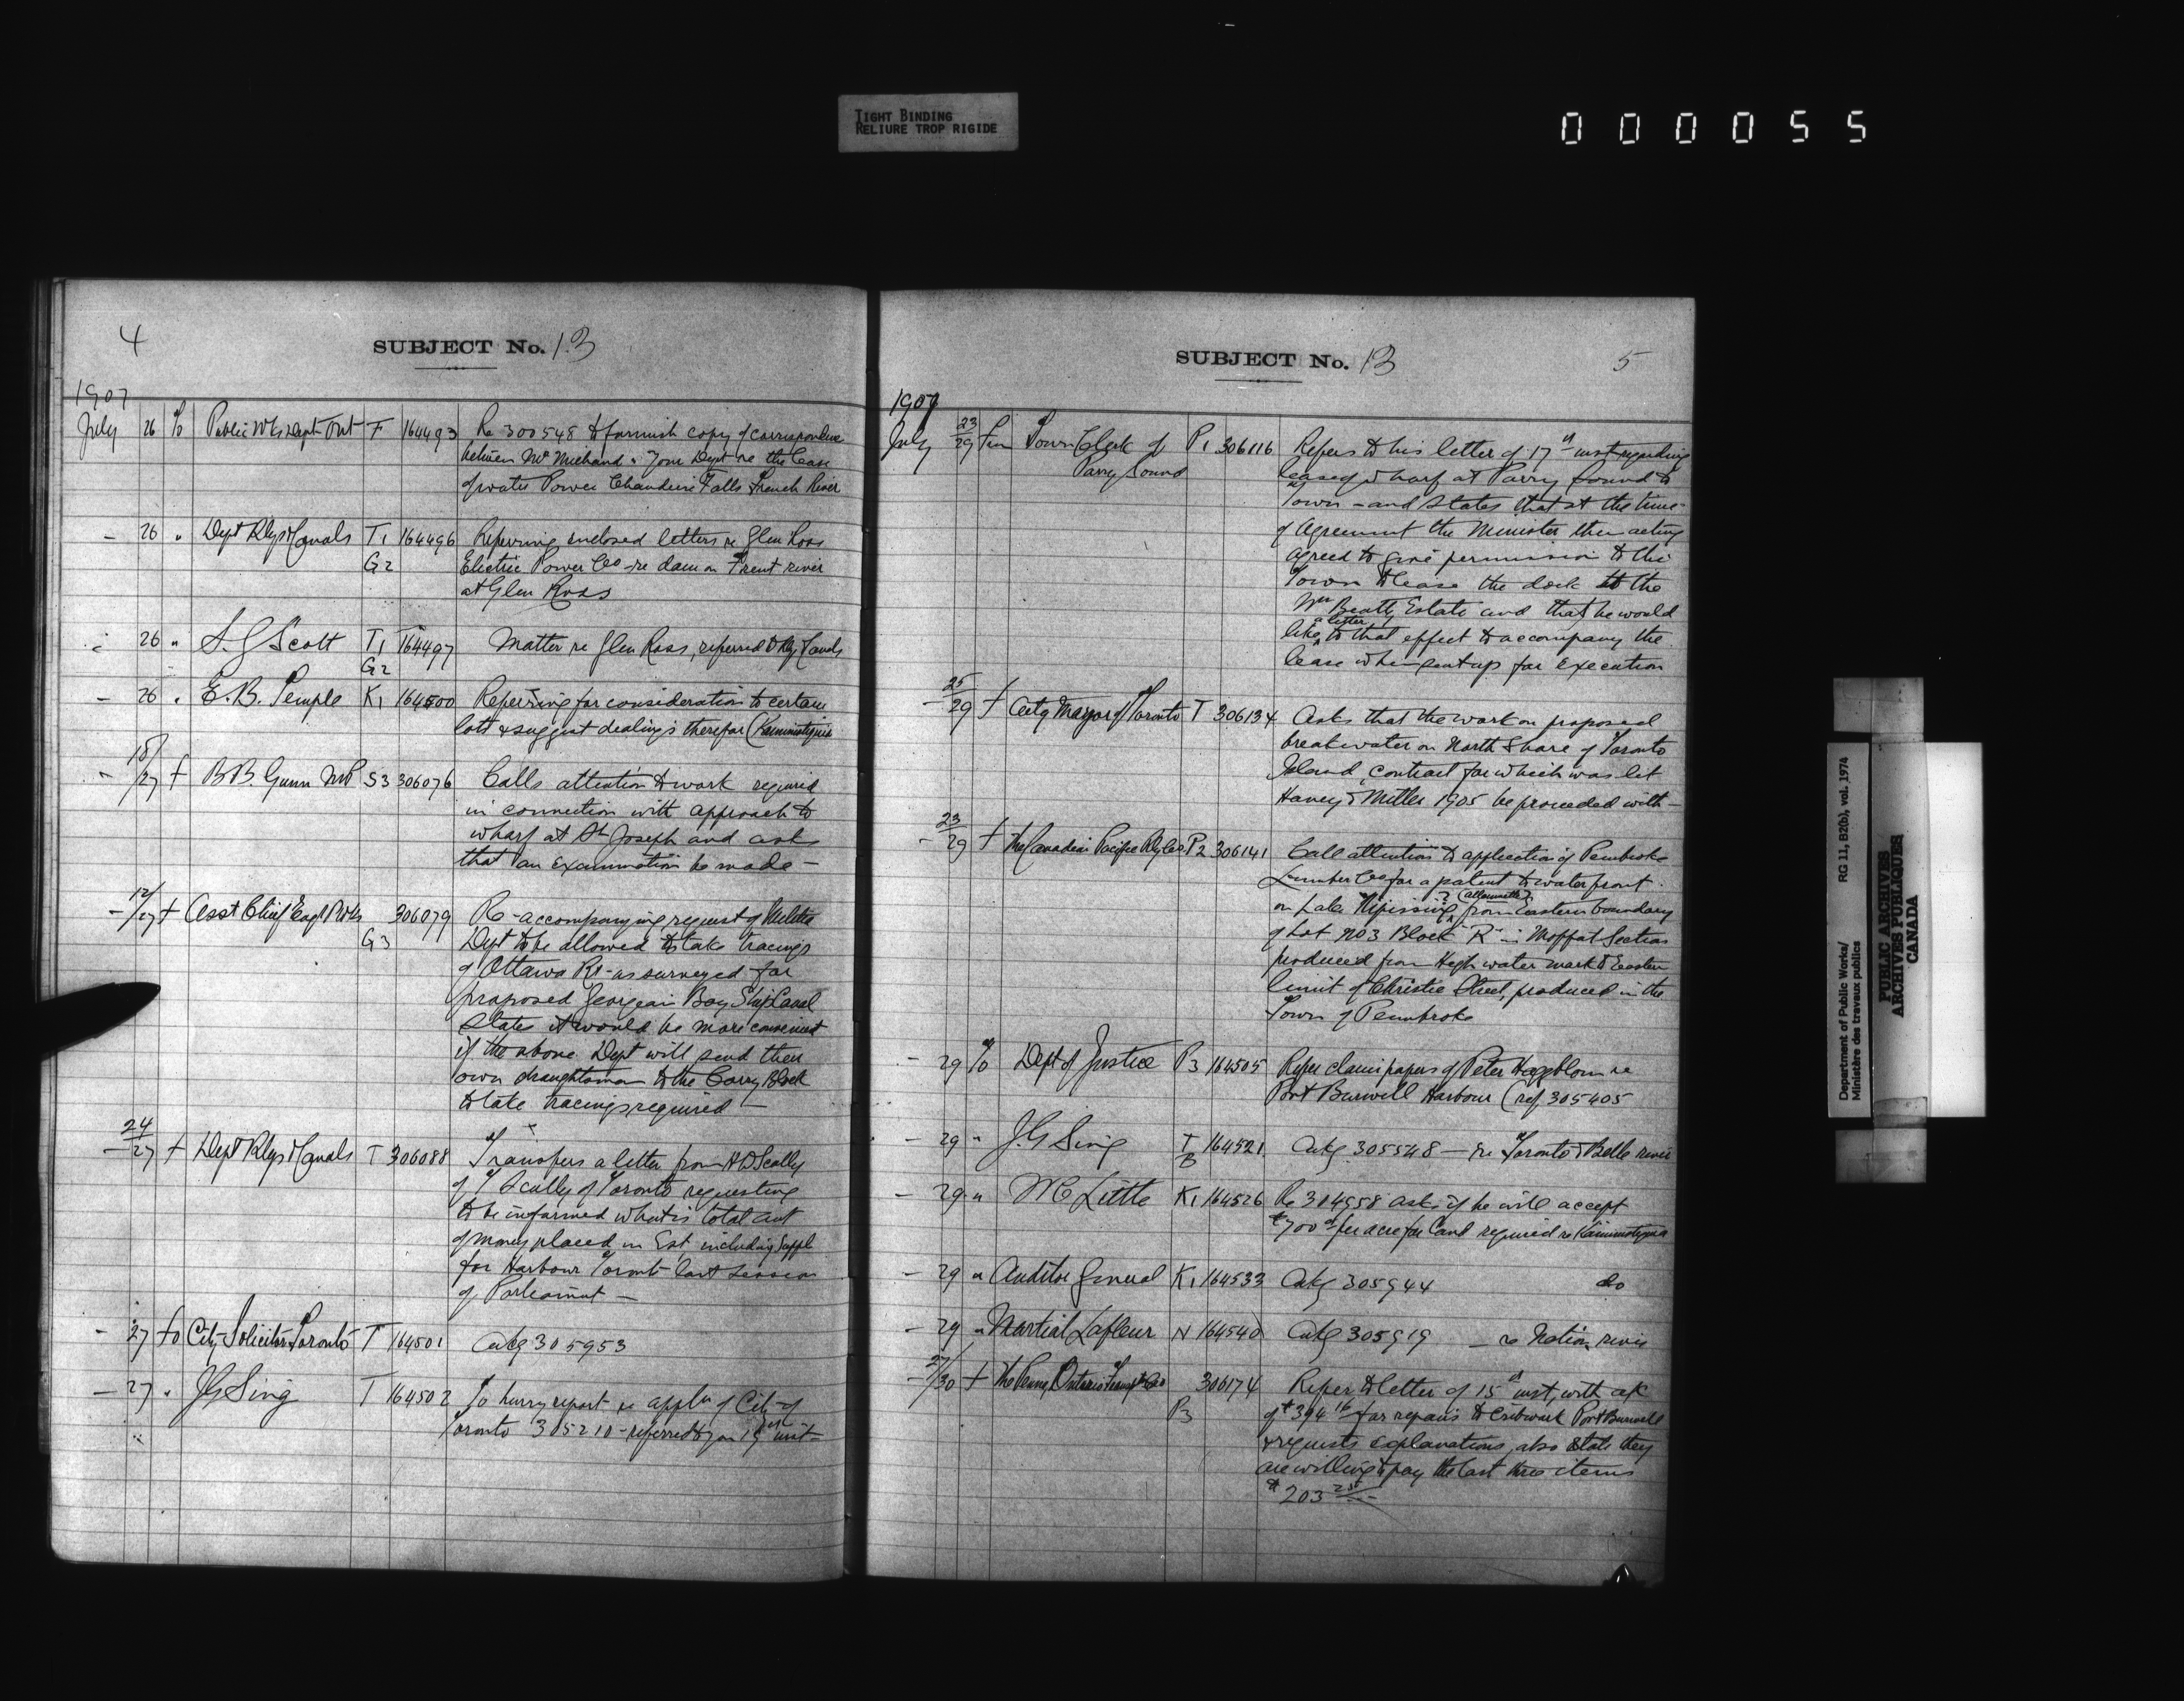 TIGHT BINDING
RELIURE TROP RIGIDE
000055
4
SUBJECT No. 13
1907
July 26 To Public Wks Dept Ont F 164493 Re 300548 to furnish copy of correspondence
between Mr Michaud & Your Dept re the lease
of water Power Chaudiere Falls French River
- 26 " Dept Rlys & Canals T1 164496 Referring enclosed letters re Glen Ross
G2 Electric Power Co re dam on Trent river
at Glen Ross
26 " S. G Scott T1 164497 Matter re Glen Ross, referred to Rly & Canals
G2
- 26 " E. B. Temple K1 164500 Referring for consideration to certain
lots & suggest dealings therefor (Kaministiquia
18/27 f B.B. Gunn MP S3 306076 Calls attention to work required
in connection with approach to
wharf at St Joseph and asks
that an examination be made -
- 12/27 f Asst Chief Eng P Wks 306079 Re - accompanying request of Militia
G3 Dept to be allowed to take tracings
of Ottawa Rr - as surveyed for
proposed Georgian Bay Ship Canal
States it would be more convenient
if the above Dept will send their
own draughtsman to the Corry Block
to take tracings required -
- 24/27 f Dept Rlys & Canals T 306088 Transfers a letter from H D Scully
of Scully of Toronto requesting
to be informed what is total amt
of money placed in Est, including Suppl
for Harbour Toronto last session
of Parliament -
- 27 to City Solicitor Toronto T 164501 Ackg 305953
- 27 " J G Sing T 164502 To hurry report re appln of City of
Toronto 305210 - referred to you 19th inst -
SUBJECT No. 13
5
1907
July 23/29 fm Town Clerk of P1 306116 Refers to his letter of 17th inst regarding
Parry Sound lease of wharf at Parry Sound to
Town - and States that at the time
of Agreement the Minister then acting
agreed to give permission to the
Town to lease the dock to the
Wm Beatty Estate and that he would
like a letter to that effect to accompany the
lease when sent up for execution
- 25/29 f City Mayor of Toronto T 306134 Asks that the work on proposed
breakwater on North Shore of Toronto
Island, contract for which was let
Haney & Miller 1905 be proceeded with -
- 23/29 f The Canadian Pacific Rly Co P2 306141 Call attention to application of Pembroke
Lumber Co for a patent to water front
on Lake Nipissing ? (Allumette?) from Eastern boundary
of Lot No 3 Block "R" in Moffat Section
produced from High water mark to Eastern
limit of Christie Street, produced in the
Town of Pembroke
- 29 To Dept of Justice P3 164505 Refer claim papers of Peter Hagblom re
Port Burwell Harbour (ref 305405
- 29 " J. G Sing T 164521 Ackg 305548 - re Toronto & Belle river
B
- 29 " Little K1 164526 Re 304958 ask if he will accept
$700 per acre for land required re Kaministiquia
- 29 " Auditor General K1 164533 Ackg 305944 do
- 29 " Martial Lafleur N 164540 Ackg 305919 - re Nation river
- 27/30 f The Penna Ontario Transptn Co 306174 Refer to letter of 15th inst, with a/c
P3 of $394 16 for repairs to cribwork Port Burwell
& requests explanations, also state they
are willing to pay the last three items
$203
Department of Public Works/ RG 11, B2(b), vol. 1974
Ministère des travaux publics
PUBLIC ARCHIVES
ARCHIVES PUBLIQUES
CANADA